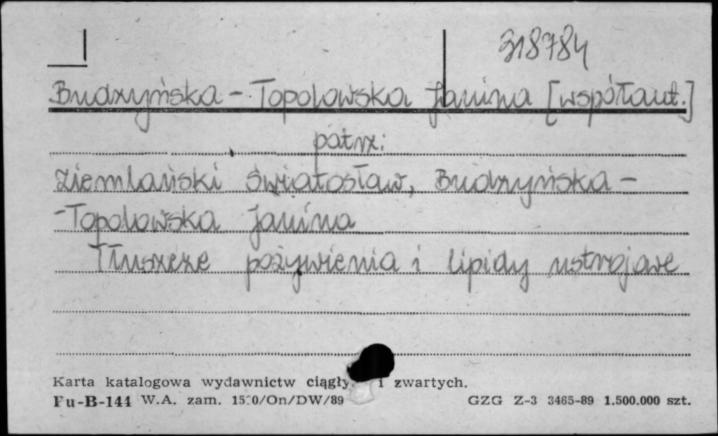 318784
Budzyńska - Topolowska Janina [współaut.]
patrz:
Ziemlański Światosław, Budzyńska -
-Topolowska Janina
Tłuszcze pożywienia i lipidy ustrojowe
Karta katalogowa wydawnictw ciągły i zwartych.
Pu-B-144 W.A. zam. 1510/On/DW/89 GZG Z-3 3465-89 1.500.000 szt.